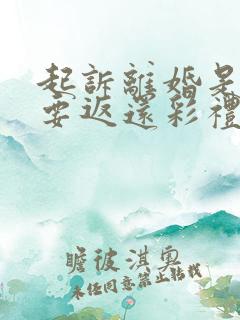 起訴離婚是
要返還彩禮
瞻彼淇奧
未经同意禁止转载